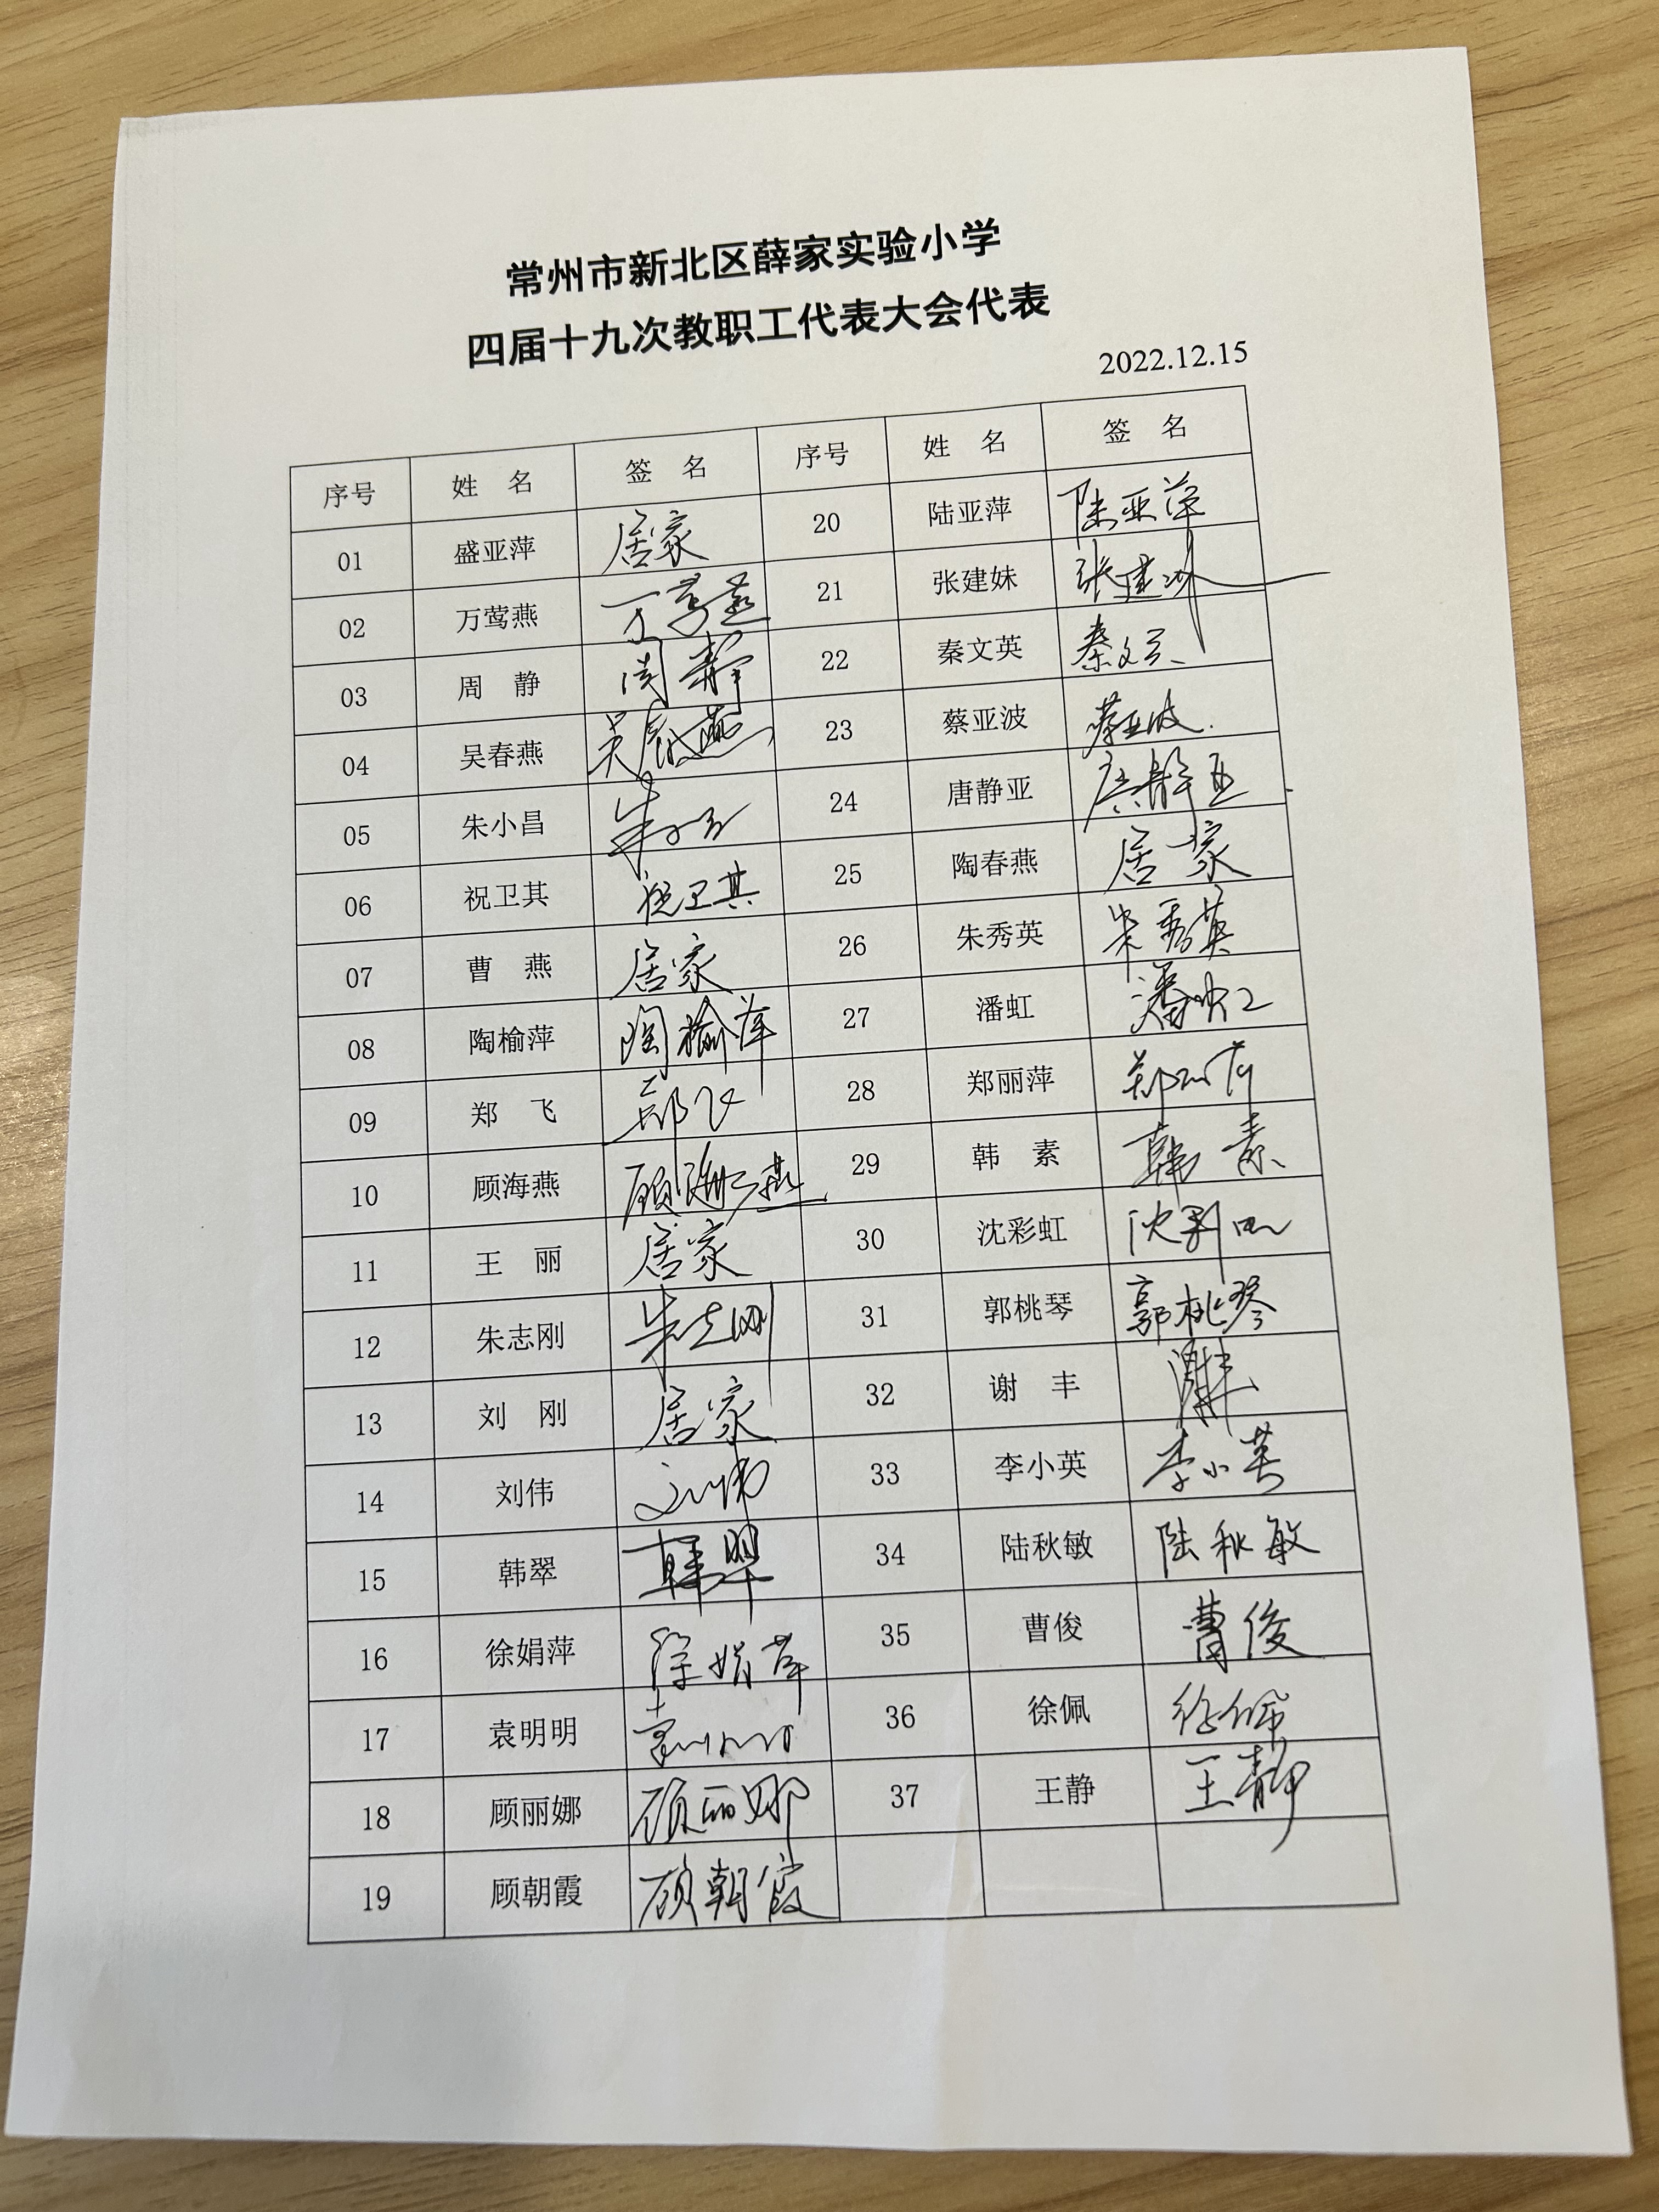 常州市新北区薛家实验小学
四届十九次教职工代表大会代表
2022.12.15
序号 姓 名 签 名 序号 姓 名 签 名
01 盛亚萍 居家 20 陆亚萍 陆亚萍
02 万莺燕 万莺燕 21 张建妹 张建妹
03 周 静 周静 22 秦文英 秦文英
04 吴春燕 吴春燕 23 蔡亚波 蔡亚波
05 朱小昌 朱小昌 24 唐静亚 唐静亚
06 祝卫其 祝卫其 25 陶春燕 居家
07 曹 燕 居家 26 朱秀英 朱秀英
08 陶榆萍 陶榆萍 27 潘虹 潘虹
09 郑 飞 郑飞 28 郑丽萍 郑丽萍
10 顾海燕 顾海燕 29 韩 素 韩素
11 王 丽 居家 30 沈彩虹 沈彩虹
12 朱志刚 朱志刚 31 郭桃琴 郭桃琴
13 刘 刚 居家 32 谢 丰 谢丰
14 刘伟 刘伟 33 李小英 李小英
15 韩翠 韩翠 34 陆秋敏 陆秋敏
16 徐娟萍 徐娟萍 35 曹俊 曹俊
17 袁明明 袁明明 36 徐佩 徐佩
18 顾丽娜 顾丽娜 37 王静 王静
19 顾朝霞 顾朝霞